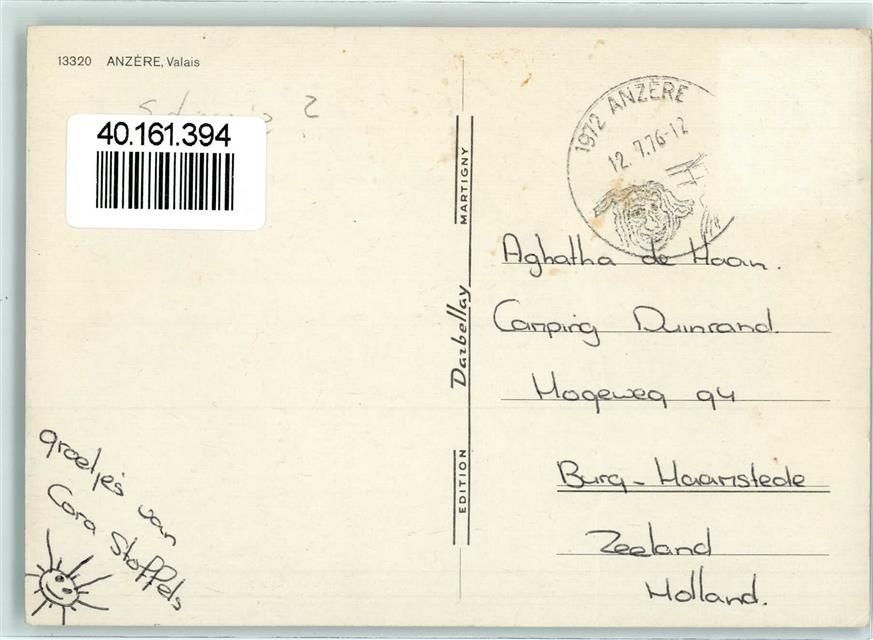 13320 ANZÈRE, Valais
40.161.394
groetjes van
Cora Stoffels
EDITION Darbellay MARTIGNY
1972 ANZÈRE
12.7.76-12
Aghatha de Haan.
Camping Duinrand.
Hogeweg 94
Burg-Haamstede
Zeeland
Holland.